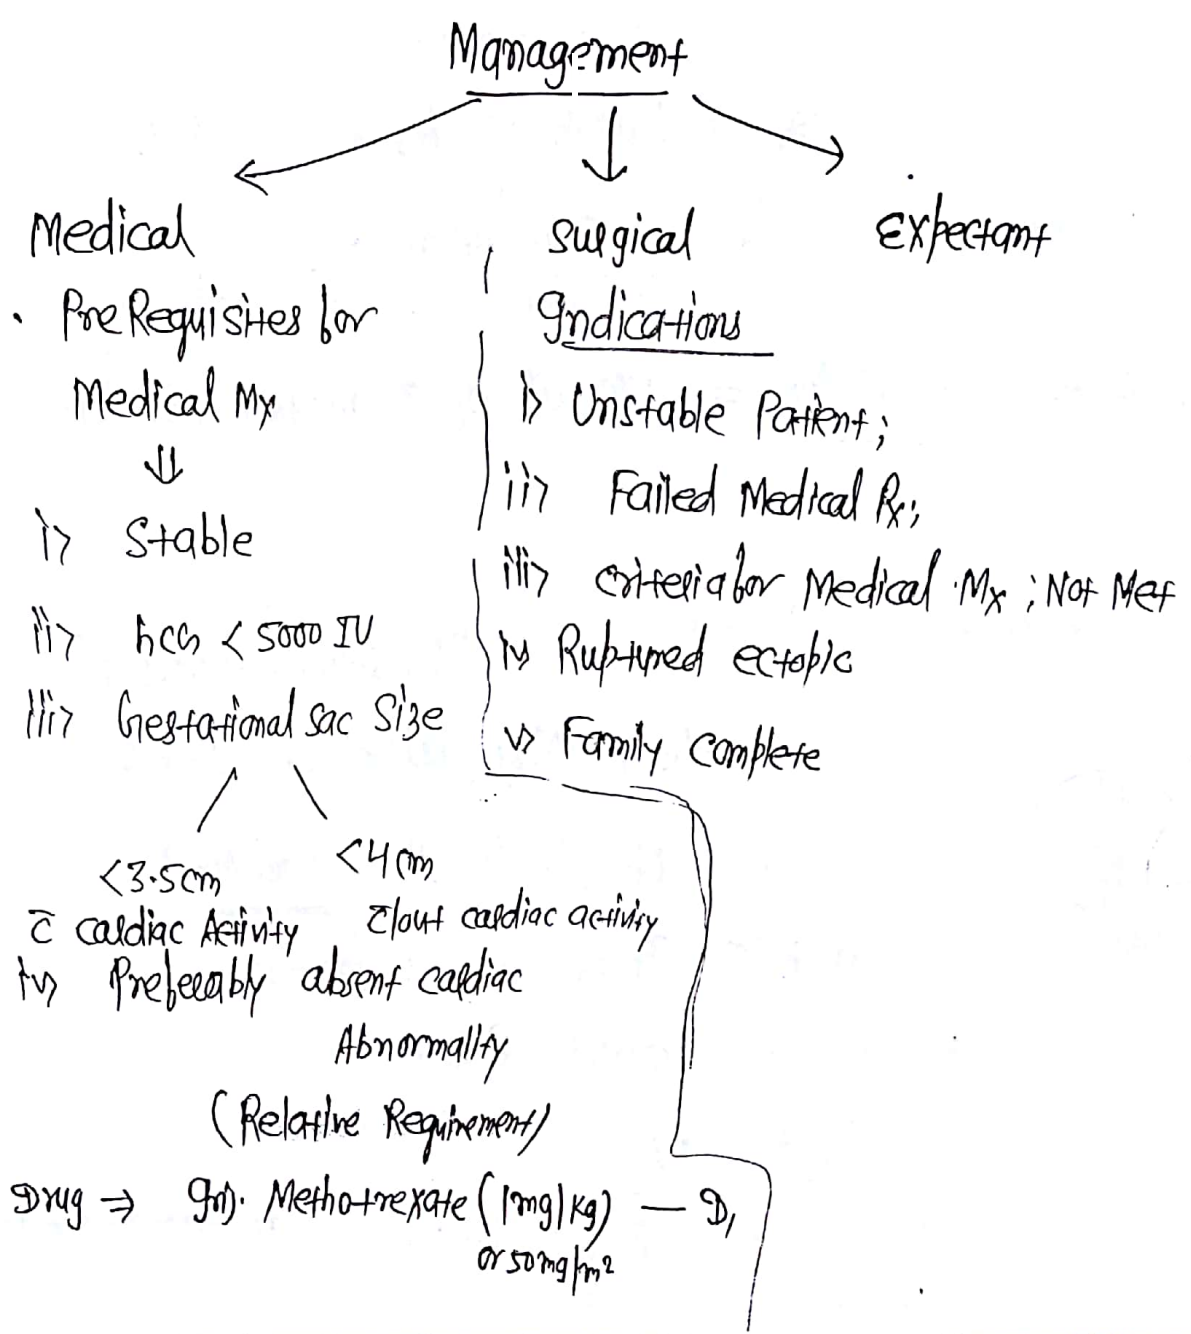 Management
Medical
Surgical
Expectant
• PreRequisites for
Medical Mx
⇓
i> Stable
ii> hcG < 5000 IU
iii> Gestational Sac Size
<3.5cm
<4cm
c̄ cardiac Activity
c̄/out cardiac activity
iv> Preferably absent cardiac
Abnormality
(Relative Requirement)
Drug ⇒ Inj. Methotrexate (1mg/kg) — D₁
or 50mg/m²
Indications
i> Unstable Patient;
ii> Failed Medical Rx;
iii> Criteria for Medical Mx; Not Met
iv> Ruptured ectopic
v> Family complete